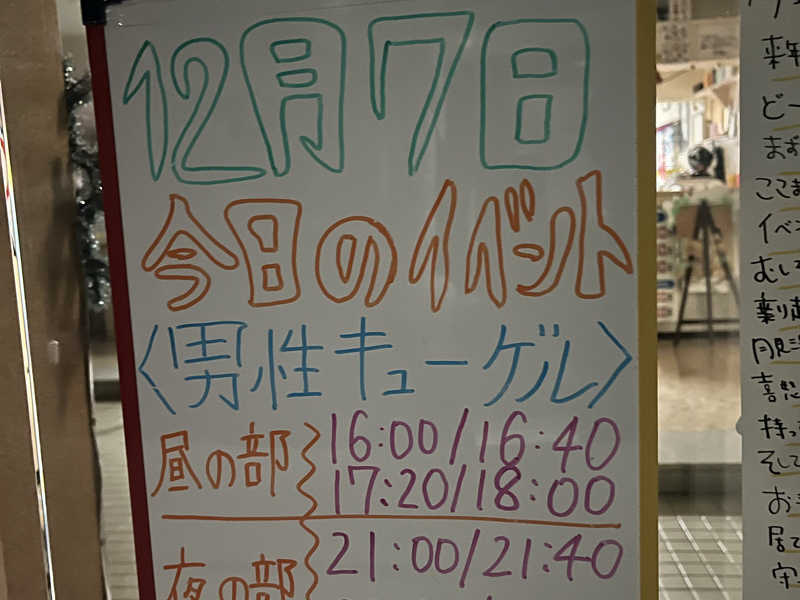 12月7日
今日のイベント
〈男性キューゲル〉
昼の部 16:00/16:40
17:20/18:00
夜の部 21:00/21:40
来年
どー
まず
ここま
イベン
むし
持っ
そして
お
居て
守